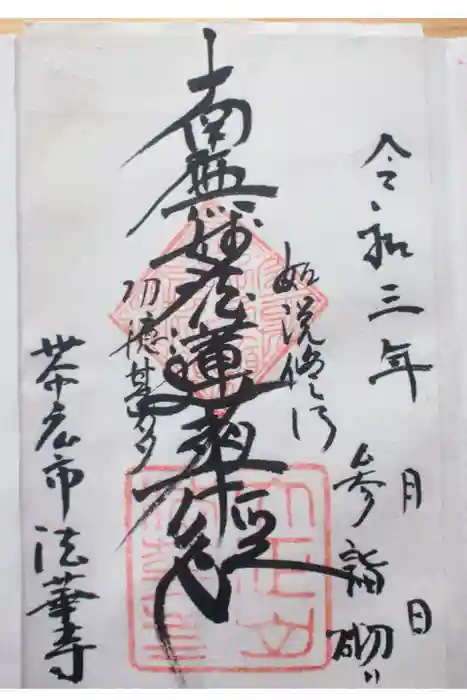 令和三年 月 日
参詣砌
如説修行
南無妙法蓮華経
功徳甚多
帯広市 法華寺